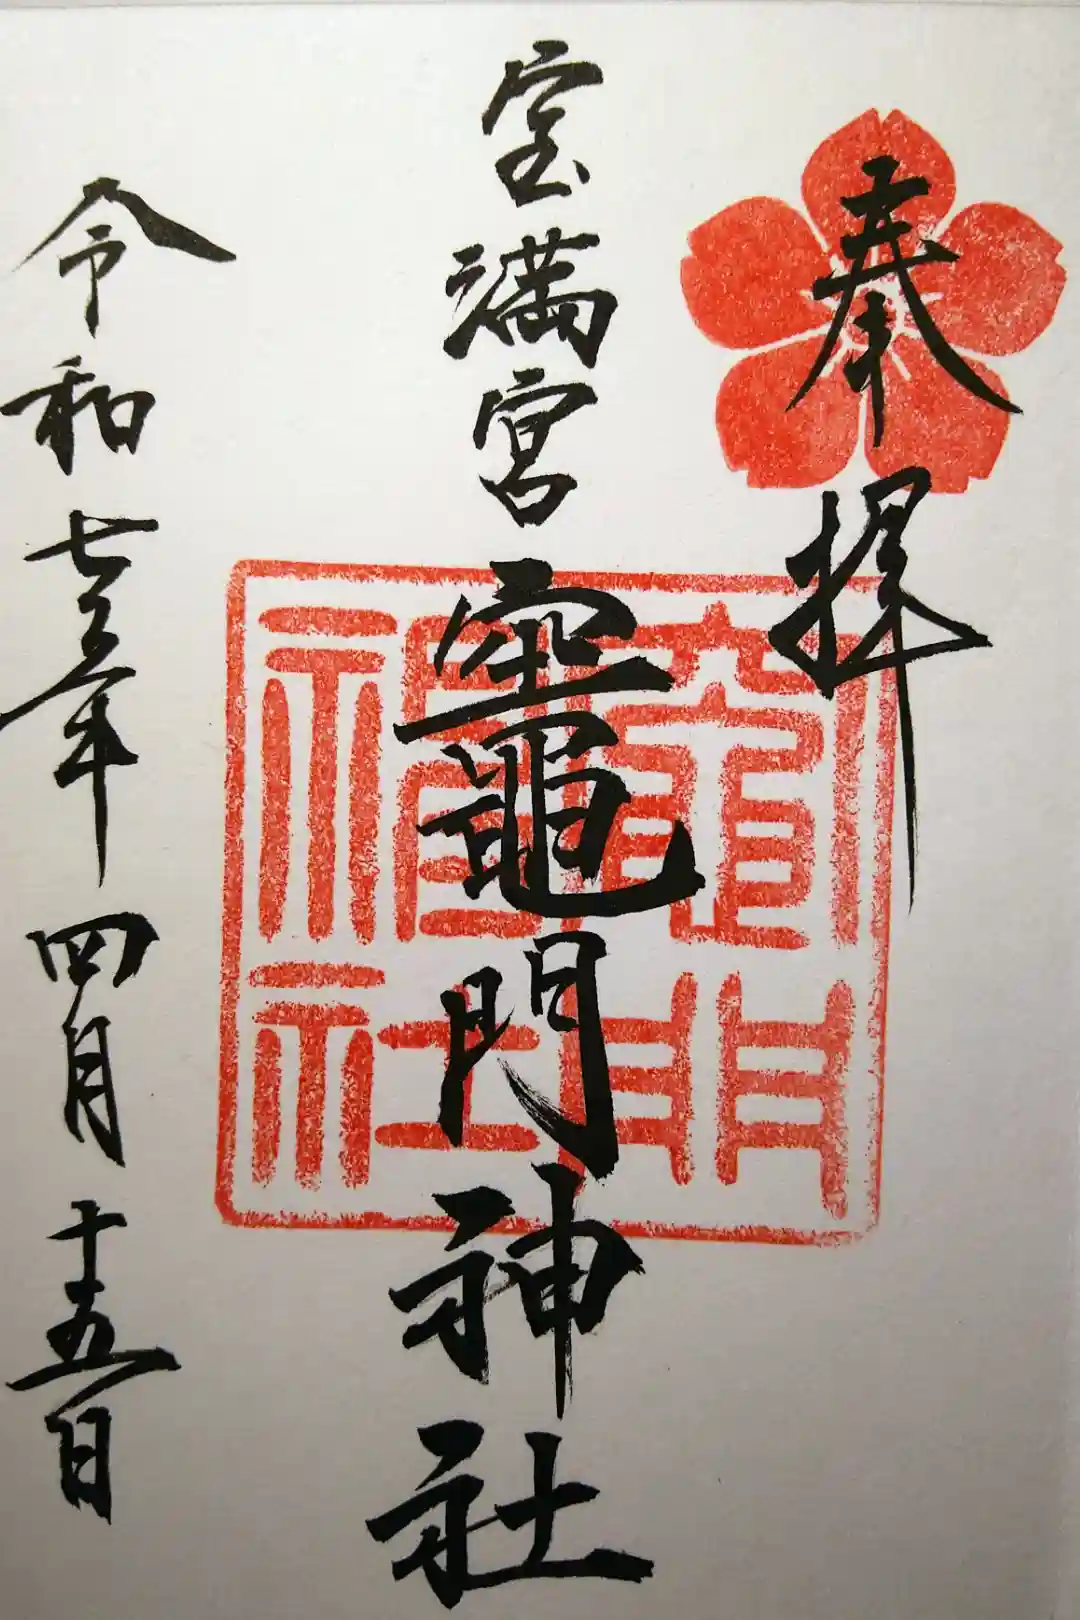 奉拝
宝満宮竈門神社
竈門
神社
令和七年四月十五日